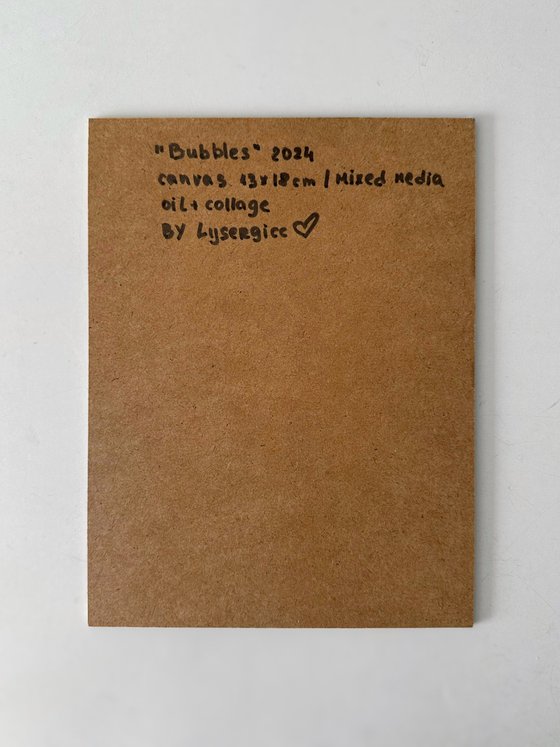 "Bubbles" 2024
canvas 13x18cm / Mixed Media
oil + collage
BY Lysergicc ♡